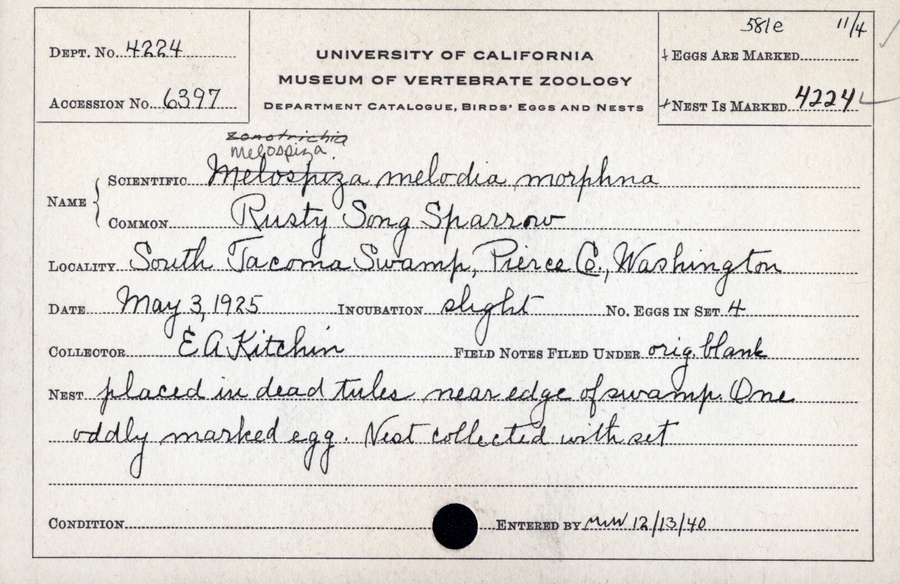 581e 11/4
Dept. No. 4224
UNIVERSITY OF CALIFORNIA
Eggs Are Marked
MUSEUM OF VERTEBRATE ZOOLOGY
Accession No. 6397
Department Catalogue, Birds' Eggs and Nests
Nest Is Marked 4224
Zonotrichia
Melospiza
Name
Scientific Melospiza melodia morphna
Common Rusty Song Sparrow
Locality South Tacoma Swamp, Pierce Co., Washington
Date May 3, 1925 Incubation slight No. Eggs in Set 4
Collector E A Kitchin Field Notes Filed Under orig. blank
Nest placed in dead tules near edge of swamp. One
oddly marked egg. Nest collected with set
Condition Entered by MWW 12/13/40